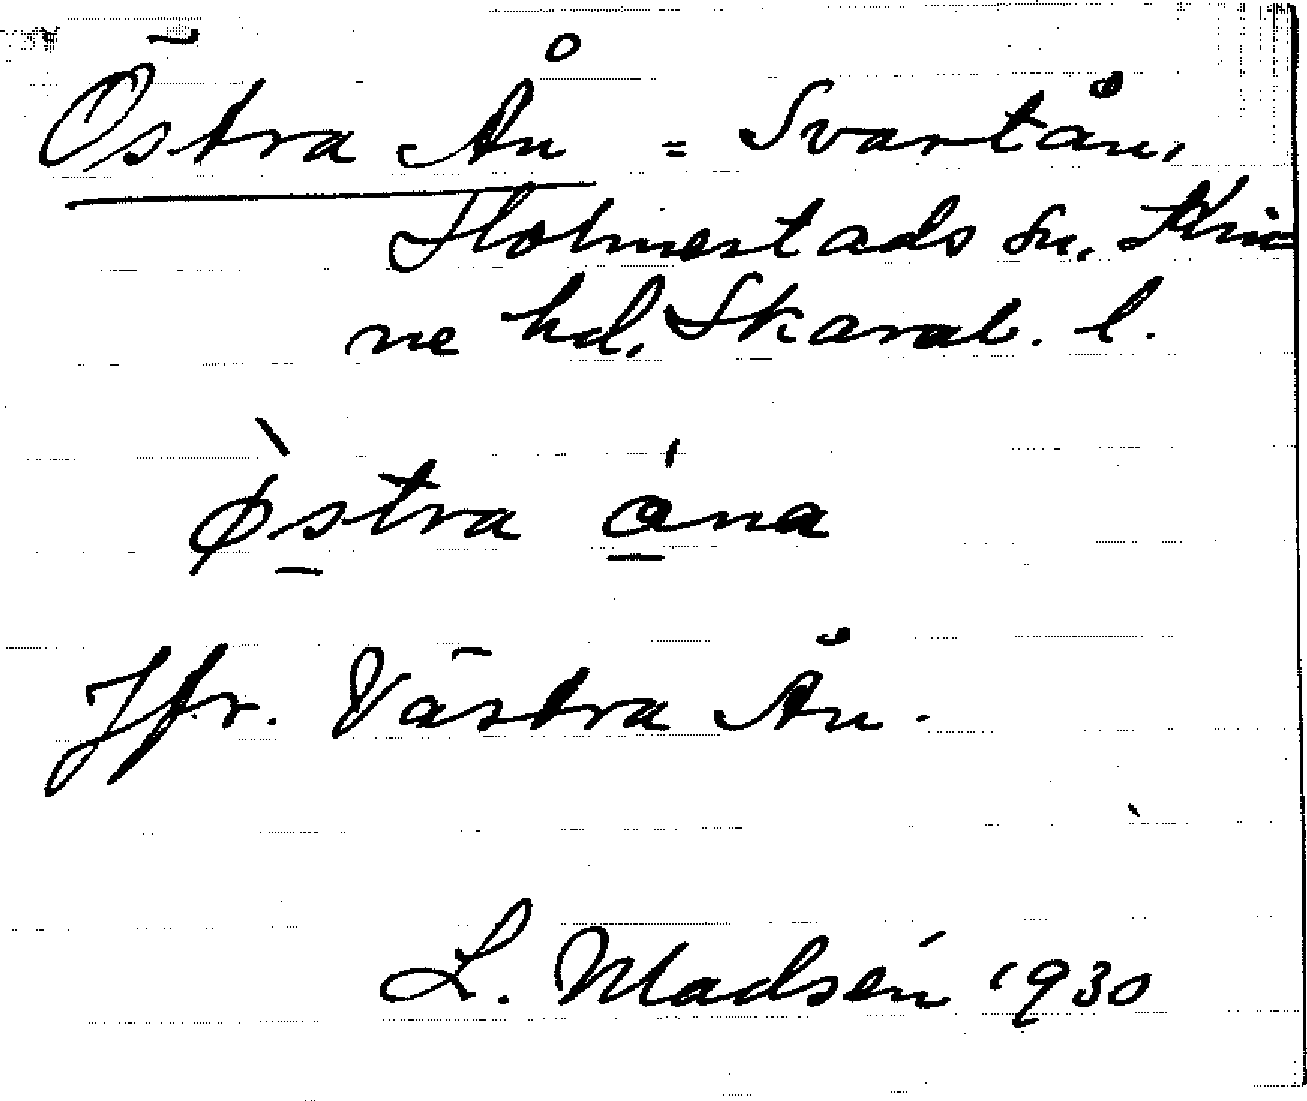 Östra Ån = Svartån,
Holmestads sn, Kin-
ne hd, Skarab. l.
Ø̀stra ána
Jfr. Västra Ån.
L. Madsén 1930